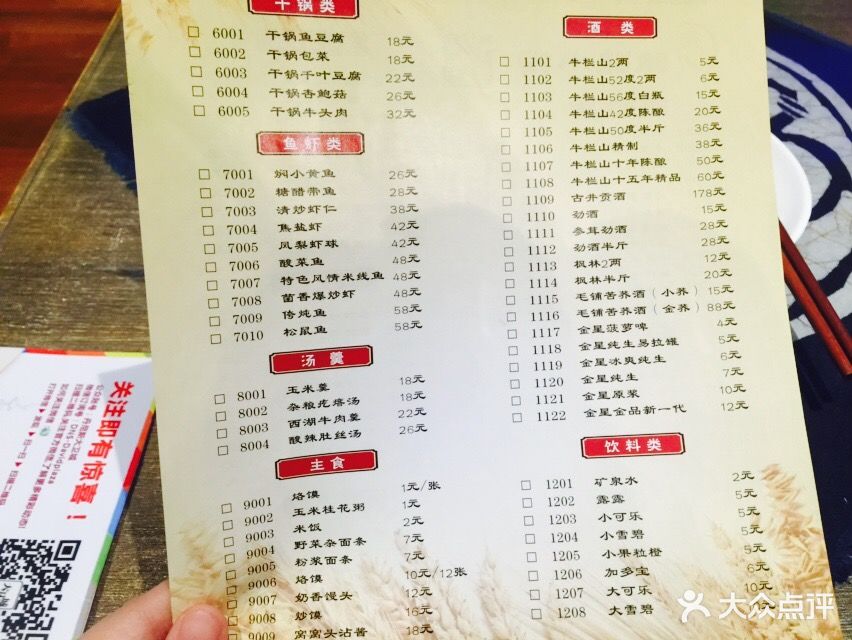 干锅类
6001 干锅鱼豆腐 18元
6002 干锅包菜 18元
6003 干锅千叶豆腐 22元
6004 干锅杏鲍菇 26元
6005 干锅牛头肉 32元
鱼虾类
7001 焖小黄鱼 26元
7002 糖醋带鱼 28元
7003 清炒虾仁 38元
7004 焦盐虾 42元
7005 凤梨虾球 42元
7006 酸菜鱼 48元
7007 特色风情米线鱼 48元
7008 茴香爆炒虾 48元
7009 侉炖鱼 58元
7010 松鼠鱼 58元
汤羹
8001 玉米羹 18元
8002 杂粮疙瘩汤 18元
8003 西湖牛肉羹 22元
8004 酸辣肚丝汤 26元
主食
9001 烙馍 1元/张
9002 玉米桂花粥 1元
9003 米饭 2元
9004 野菜杂面条 7元
9005 粉浆面条 7元
9006 烙馍 10元/12张
9007 奶香馒头 12元
9008 炒馍 16元
9009 窝窝头沾酱 18元
酒类
1101 牛栏山2两 5元
1102 牛栏山52度2两 6元
1103 牛栏山56度白瓶 15元
1104 牛栏山42度陈酿 20元
1105 牛栏山50度半斤 36元
1106 牛栏山精制 38元
1107 牛栏山十年陈酿 50元
1108 牛栏山十五年精品 60元
1109 古井贡酒 178元
1110 劲酒 15元
1111 参茸劲酒 28元
1112 劲酒半斤 28元
1113 枫林2两 12元
1114 枫林半斤 20元
1115 毛铺苦荞酒（小荞） 15元
1116 毛铺苦荞酒（金荞） 88元
1117 金星菠萝啤 4元
1118 金星纯生易拉罐 5元
1119 金星冰爽纯生 6元
1120 金星纯生 7元
1121 金星原浆 10元
1122 金星金品新一代 12元
饮料类
1201 矿泉水 2元
1202 露露 5元
1203 小可乐 5元
1204 小雪碧 5元
1205 小果粒橙 5元
1206 加多宝 6元
1207 大可乐 10元
1208 大雪碧
关注即有惊喜！
大众点评